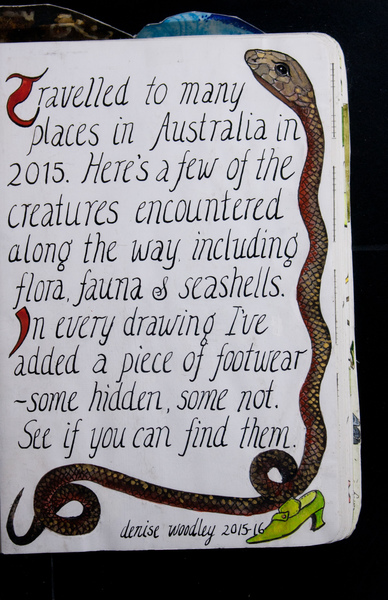 Travelled to many
places in Australia in
2015. Here's a few of the
creatures encountered
along the way, including
flora, fauna & seashells.
In every drawing I've
added a piece of footwear
~some hidden, some not.
See if you can find them.
denise woodley 2015-16